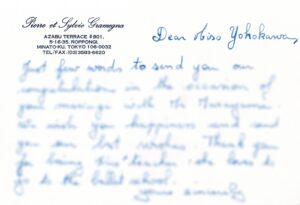 Pierre et Sylvie Gramegna
AZABU TERRACE #901,
5-16-35, ROPPONGI,
MINATO-KU, TOKYO 106-0032
TEL/FAX (03)3583-6620
Dear Miss Yohokawa,
Just few words to send you our
congratulation in the occasion of
your marriage with Mr
We wish you happiness and send
you our best wishes. Thank you
for being teacher. she loves to
go to the ballet school.
Yours sincerely